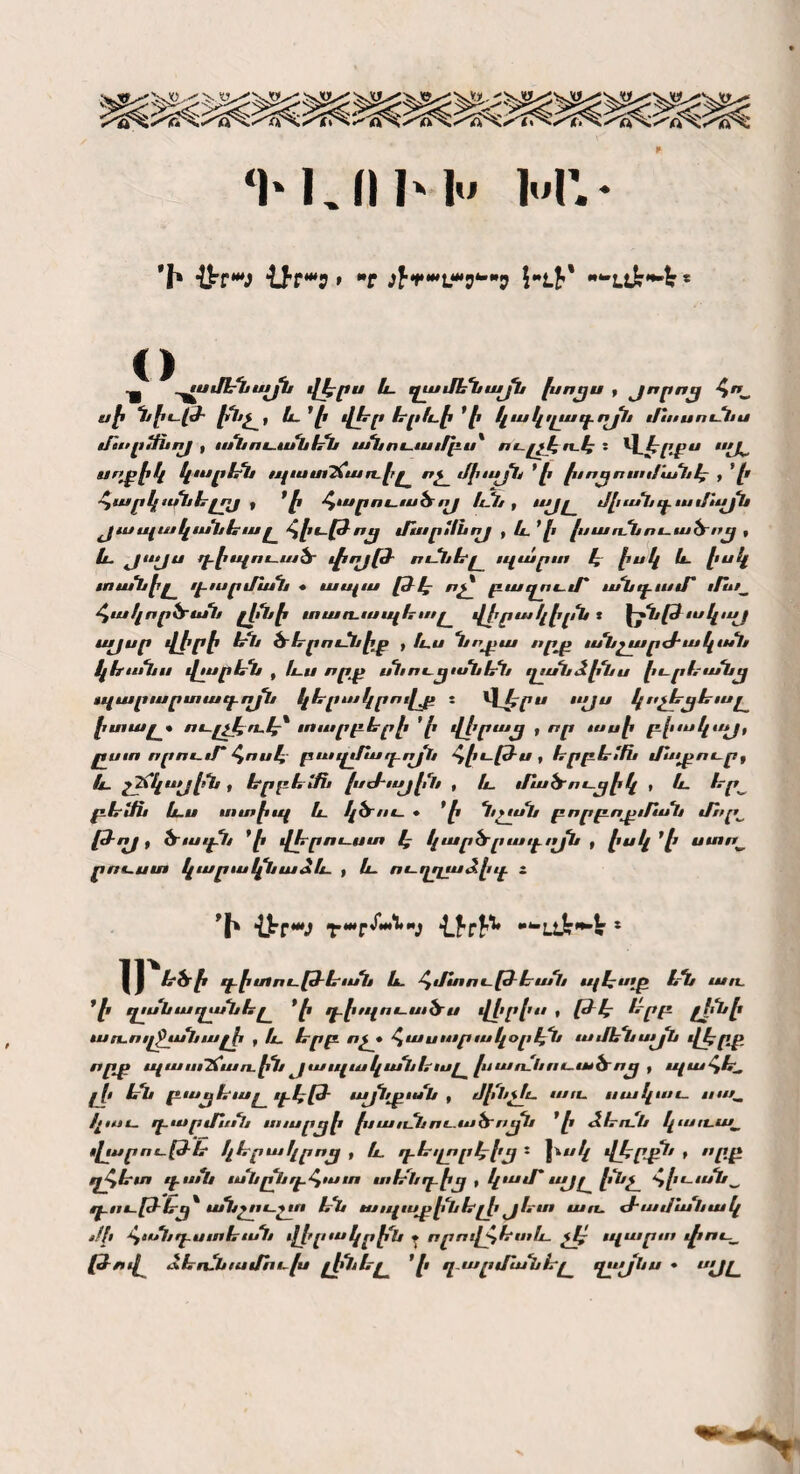 ԳԼՈՒԽ ԽԲ.
՚Ի Վերայ Վիրաց, որ յիտալացւոց կոչի՝ ուլչէռէ։
Զամենայն վէրս և զամենայն խոցս, յորոց հո_
սի նիւթ ինչ, և ՚ի վեր երևի ՚ի կակղագոյն մասունս
մարմնոյ, անուանեն անուամբս՝ ուլչէռէ։ Վէրքս այլ
սոքիկ կարեն պատճառիլ ոչ միայն ՚ի խոցոտմանէ, ՚ի
հարկանելոյ, ՚ի հարուածոյ ևն, այլ միանգամայն
յապականեալ հիւթոց մարմնոյ, և ՚ի խառնուածոց,
և յայս դիպուած փոյթ ունել պարտ է իսկ և իսկ
տանիլ դարման. ապա թէ ոչ՝ բազում անգամ մա_
հակործան լինի տառապեալ վիրակիրն։ Ընթակայ
այսր վիրի են ծերունիք, ևս նոքա որք անշարժական
կեանս վարեն, ևս որք սնուցանեն զանձինս իւրեանց
պարարտագոյն կերակրովք։ Վէրս այս կոչեցեալ
իտալ. ուլչէռէ՝ տարբերի ՚ի վիրաց, որ ասի բխակայ,
ըստ որում հոսէ բազմագոյն հիւթս, երբեմն մաքուր,
և շճկային, երբեմն խժային, և մածուցիկ, և եր_
բեմն ևս տտիպ և կծու. ՚ի նշան բորբոքման մոր_
թոյ, ծագն ՚ի վերուստ է կարծրագոյն, իսկ ՚ի ստո_
րուստ կարակնաձև, և ուղղաձիգ։
՚Ի Վերայ դարմանոյ Վիրին ուլչէռէ։
Մեծի գիտութեան և հմտութեան պէտք են առ
՚ի զանազանել ՚ի դիպուածս վիրիս, թէ երբ լինի
առողջանալի, և երբ ոչ. հասարակօրէն ամենայն վէրք
որք պատճառին յապականեալ խառնուածոց, պահե_
լի են բացեալ գէթ այնքան, մինչև առ սակաւ սա_
կաւ դարման տարցի խառնուածոցն ՚ի ձեռն կառա_
վարութե կերակրոց, և դեղորէից։ Իսկ վէրքն, որք
զհետ գան անընդհատ տենդից, կամ այլ ինչ հիւան_
դութեց՝ անշուշտ են ապաքինելի յետ առ ժամանակ
մի հանգստեան վիրակրին, որովհետև չէ պարտ փու_
թով ձեռնամուխ լինել ՚ի զարմանել զայնս. այլ